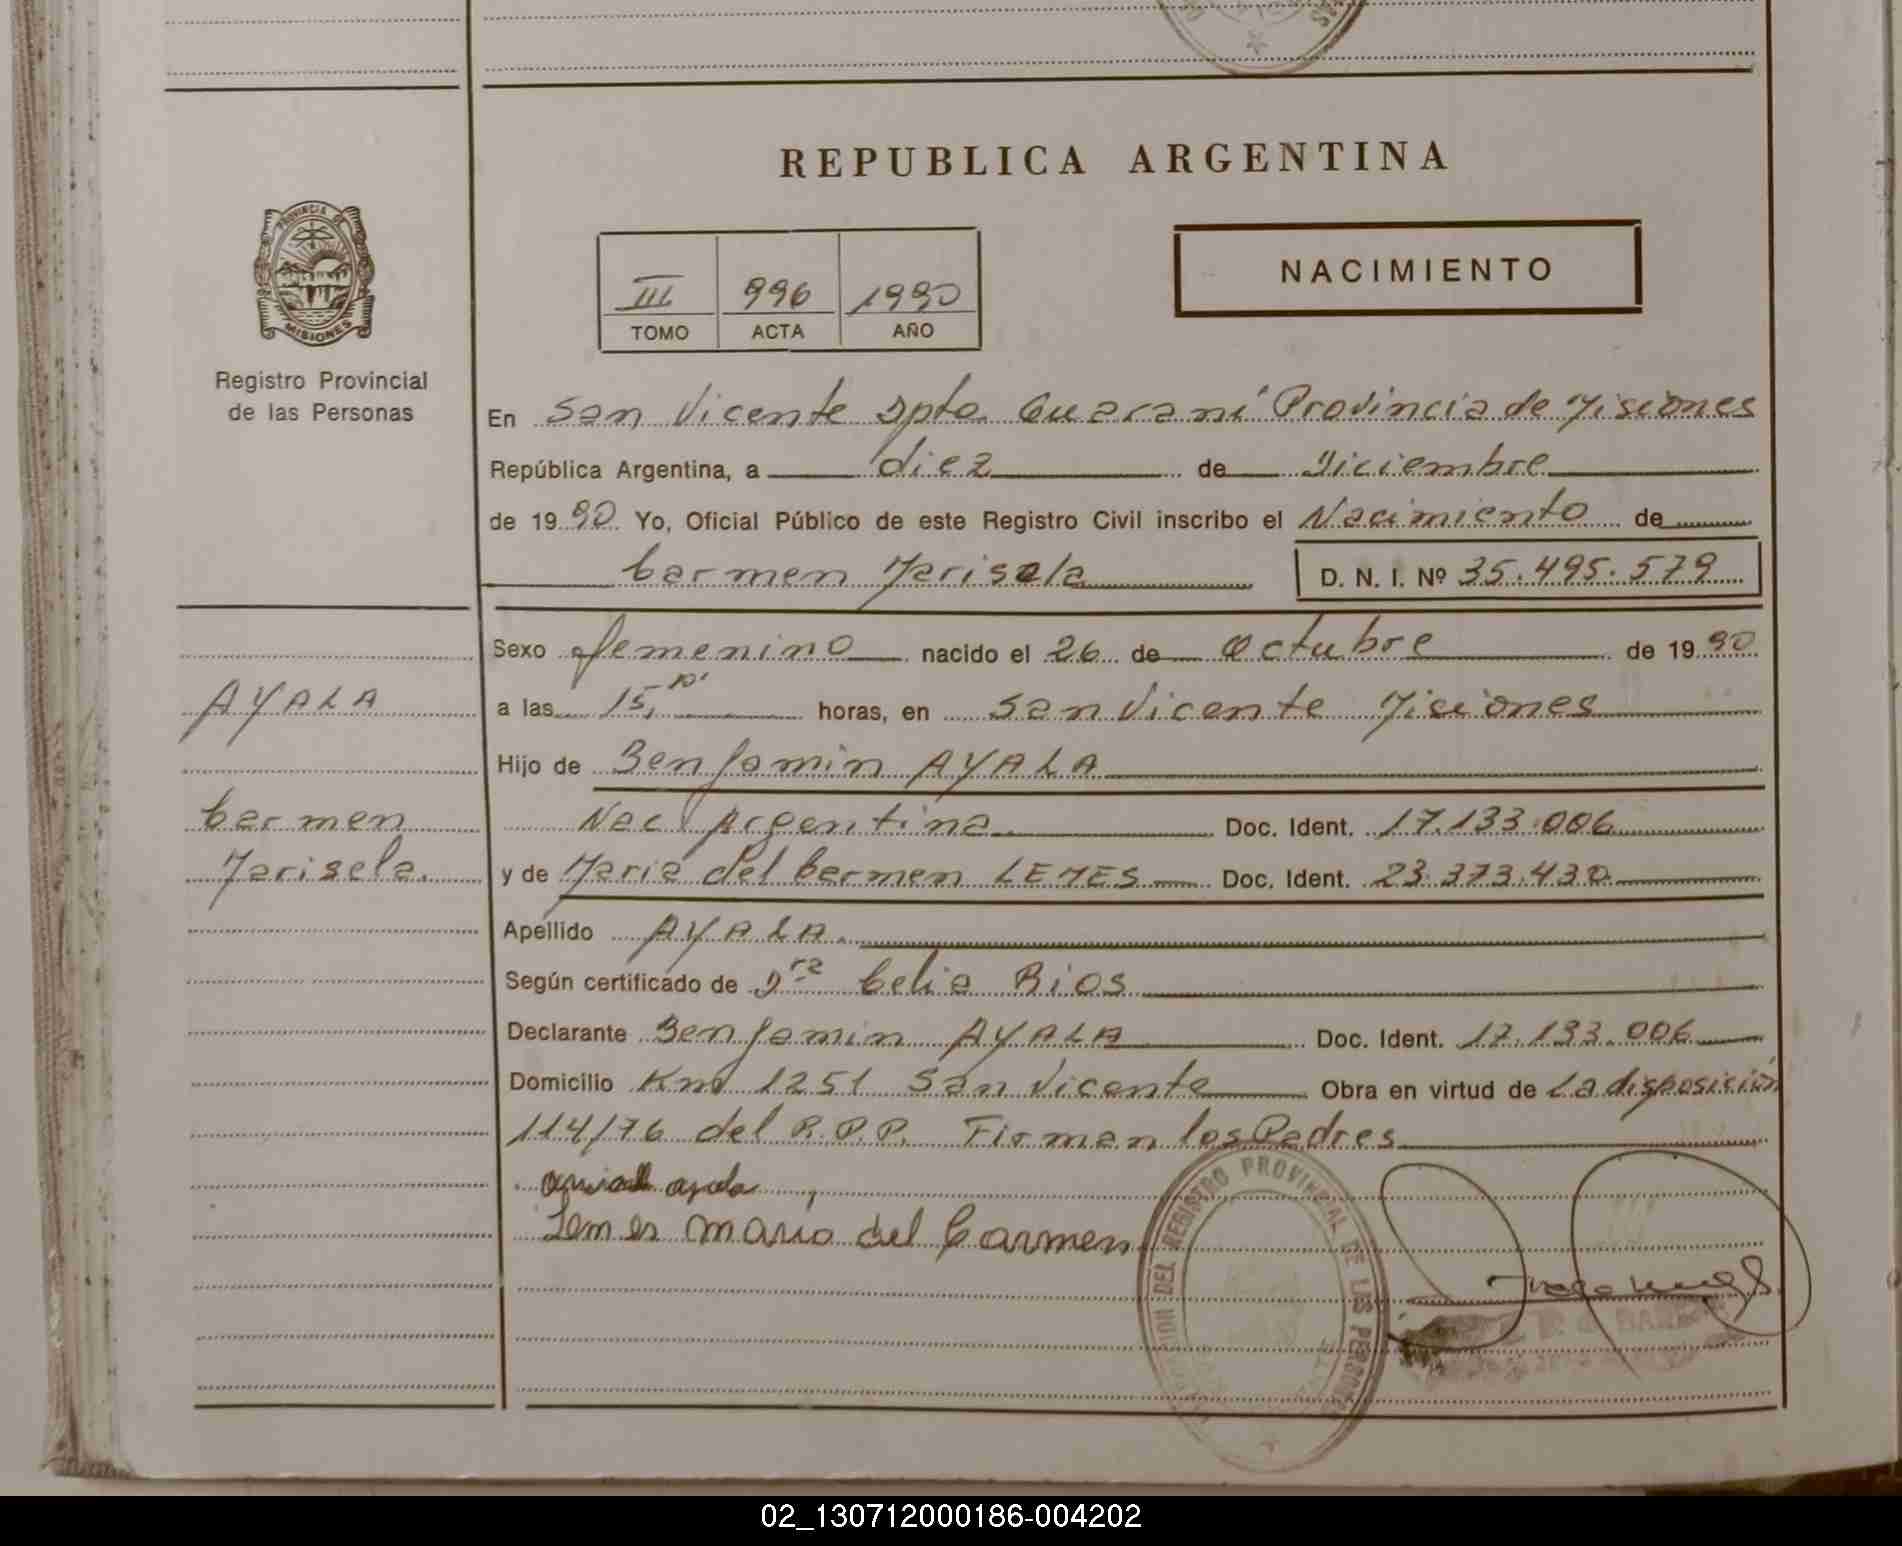 REPUBLICA ARGENTINA
PROVINCIA DE MISIONES
Registro Provincial
de las Personas
III 996 1990
TOMO ACTA AÑO
NACIMIENTO
En San Vicente Dpto. Guaraní Provincia de Misiones
República Argentina, a diez de Diciembre
de 1990 Yo, Oficial Público de este Registro Civil inscribo el Nacimiento de
Carmen Marisela D. N. I. Nº 35.495.579
Sexo femenino nacido el 26 de Octubre de 1990
AYALA
a las 15, horas, en San Vicente Misiones
Hijo de Benjamin AYALA
Carmen
Nac. Argentina Doc. Ident. 17.133.006
Marisela.
y de Maria del Carmen LEMES Doc. Ident. 23.373.430
Apellido AYALA.
Según certificado de Dra Celia Rios
Declarante Benjamin AYALA Doc. Ident. 17.133.006
Domicilio Km 1251 San Vicente Obra en virtud de La disposición
114/76 del R.P.P. Firman los Padres
ayala
Lemes maria del Carmen
DEL REGISTRO PROVINCIAL DE LAS PERSONAS
02_130712000186-004202